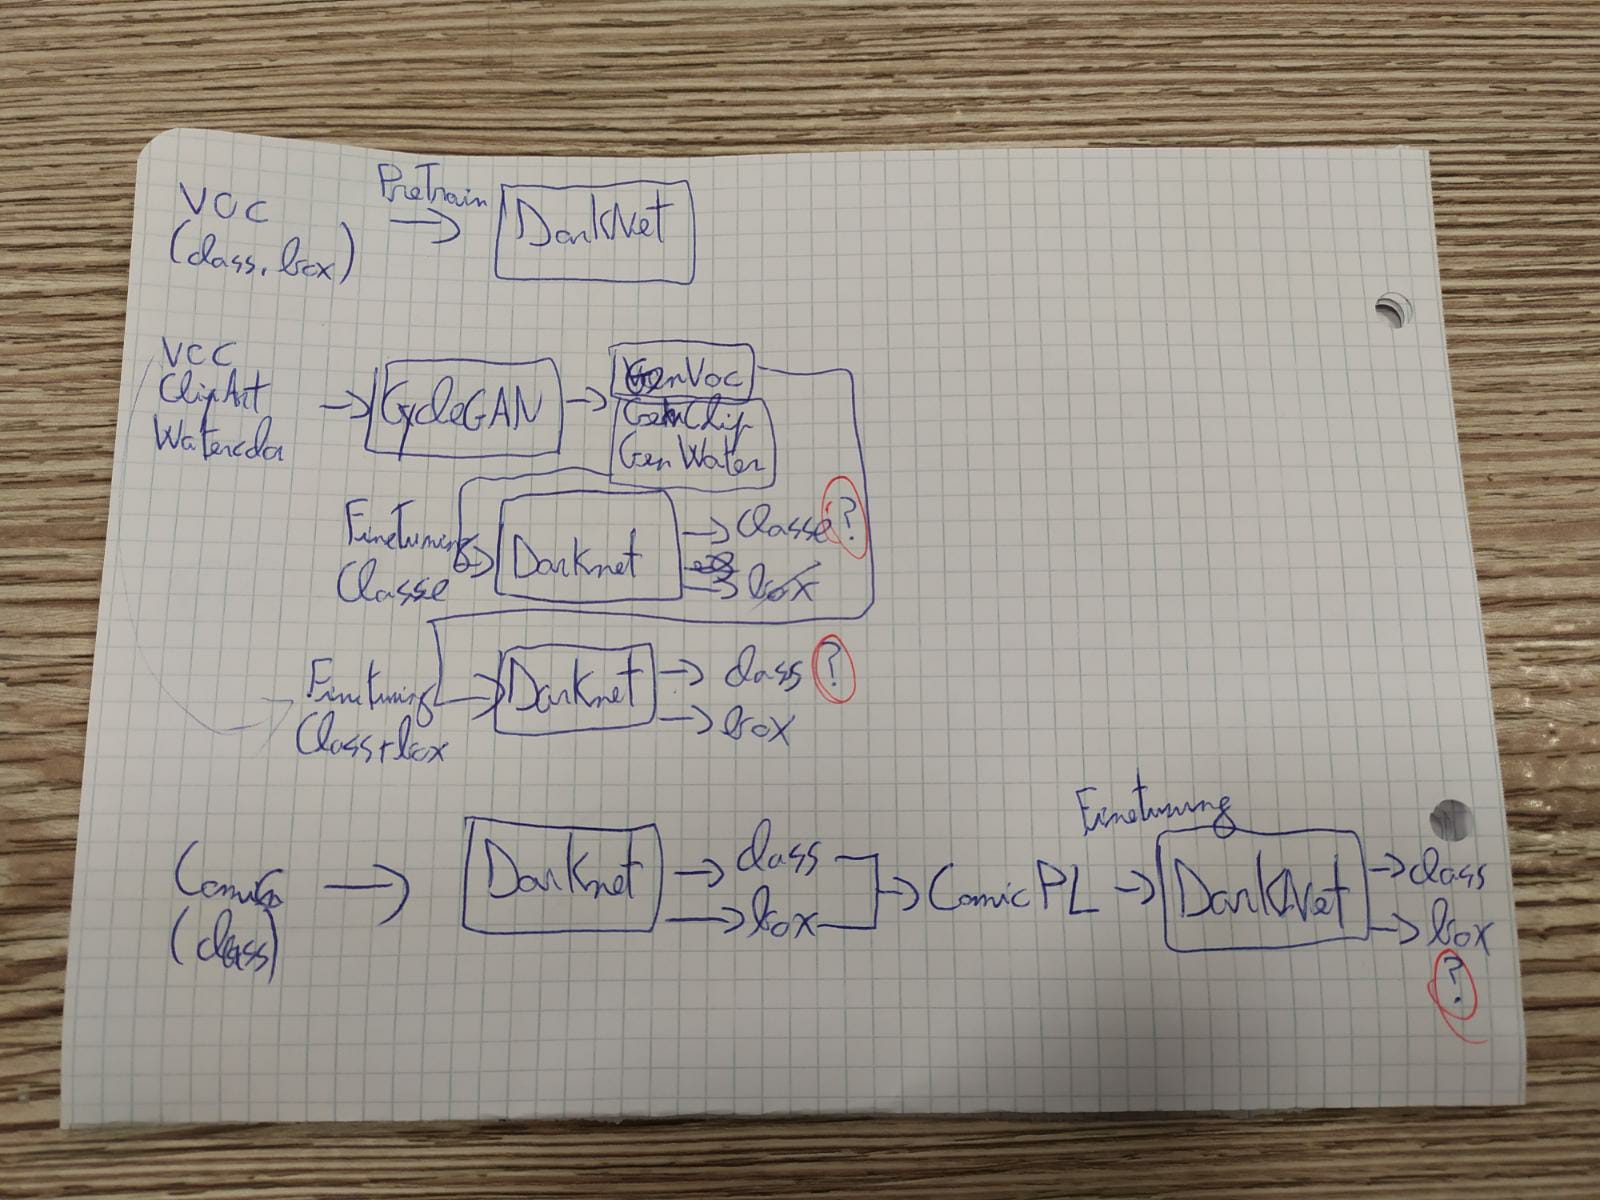 VOC
(class, box)
PreTrain
DarkNet
VOC
ClipArt
Watercolor
CycleGAN
GenVoc
GenClip
GenWater
Finetuning
Classe
Darknet
Classe ?
box
Finetuning
Class+box
Darknet
class ?
box
(class)
Darknet
class
box
Comic PL
Finetuning
DarkNet
class
box
?